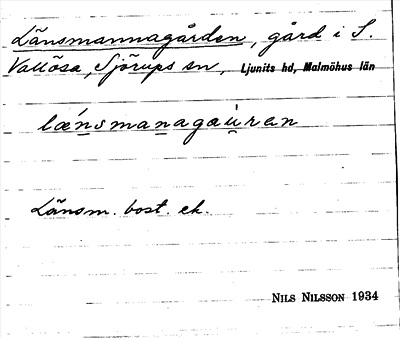 Länsmannagården, gård i S.
Vallösa, Sjörups sn, Ljunits hd, Malmöhus län
lǽnsmanagau̇ren
Länsm. bost. ek.
NILS NILSSON 1934